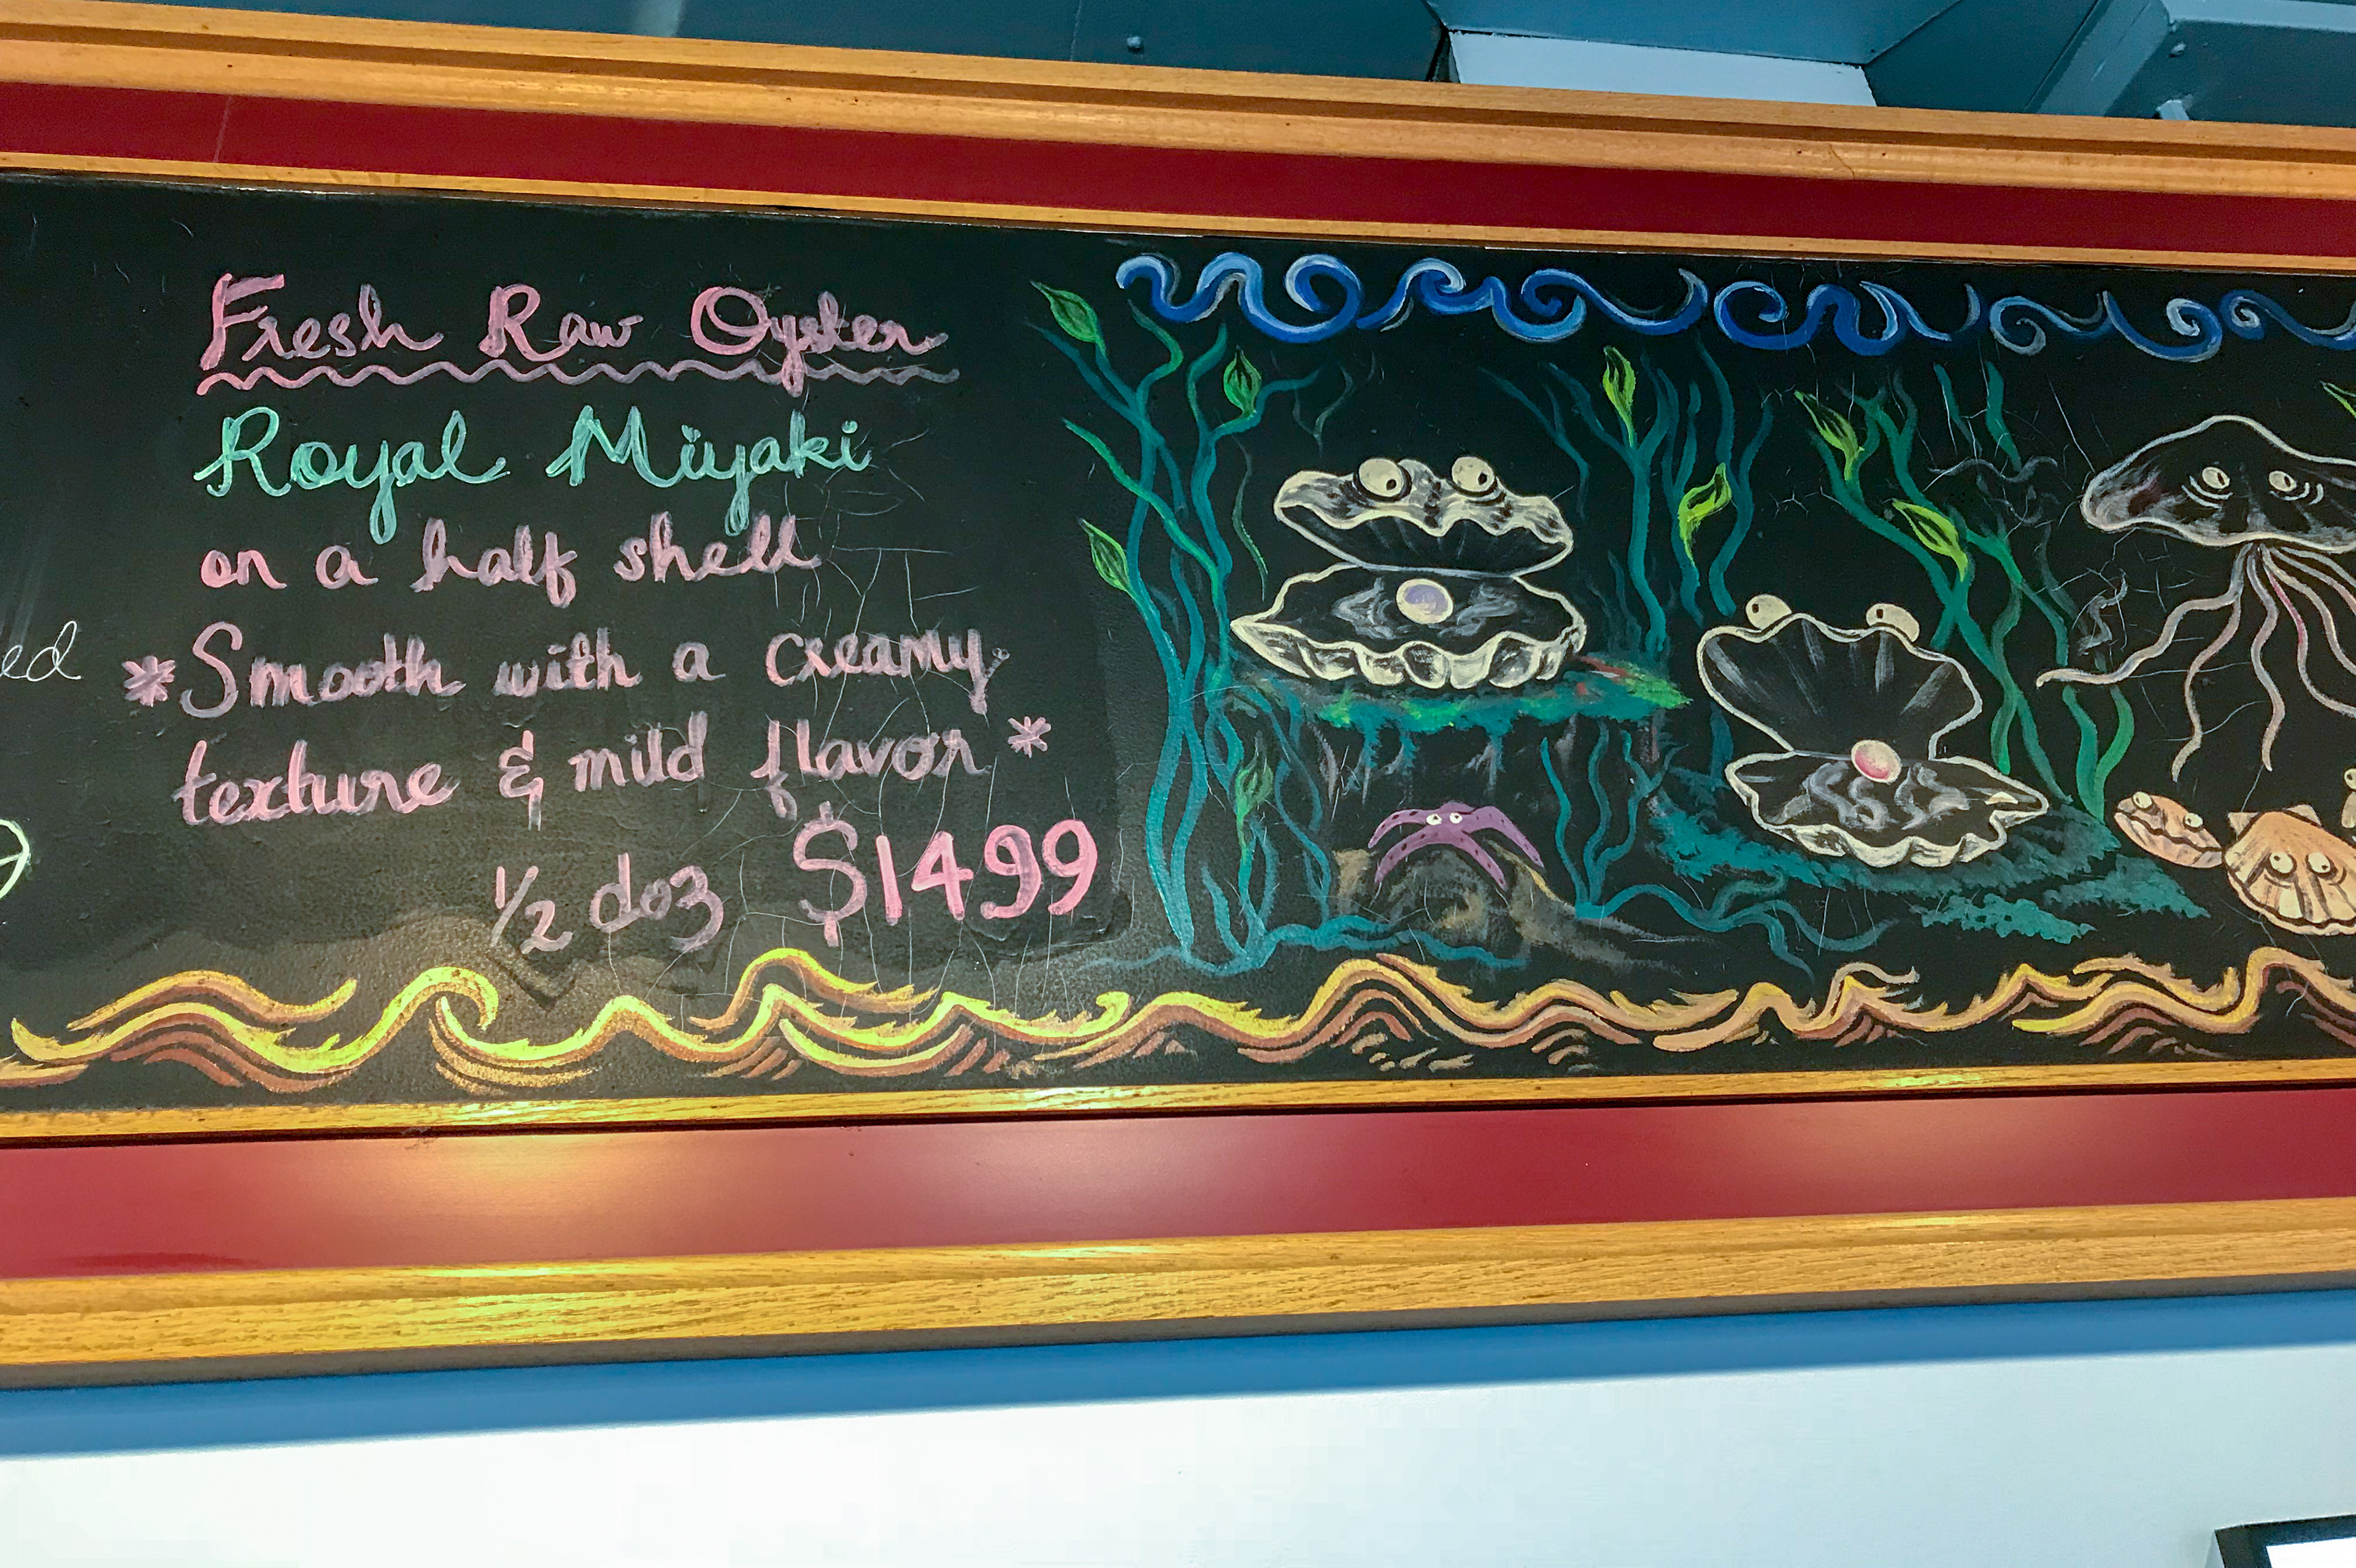 Fresh Raw Oyster
Royal Miyaki
on a half shell
*Smooth with a creamy
texture & mild flavor*
1/2 doz $1499